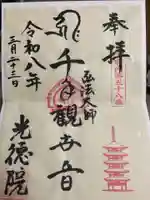 奉拝
弘法大師
千手観世音
令和八年
三月二十三日
光徳院